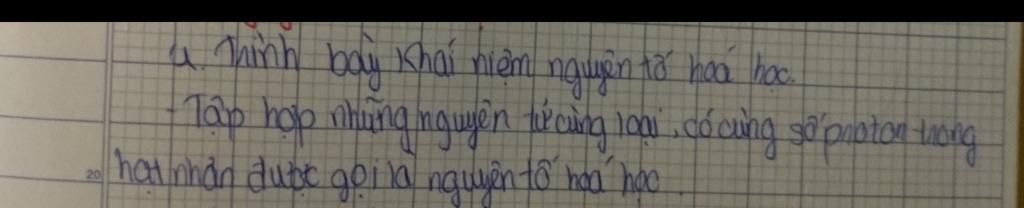 4. Trình bày khái niệm nguyên tố hoá học.
- Tập hợp những nguyên tử cùng loại, có cùng số proton trong
20 hạt nhân được gọi là nguyên tố hoá học.